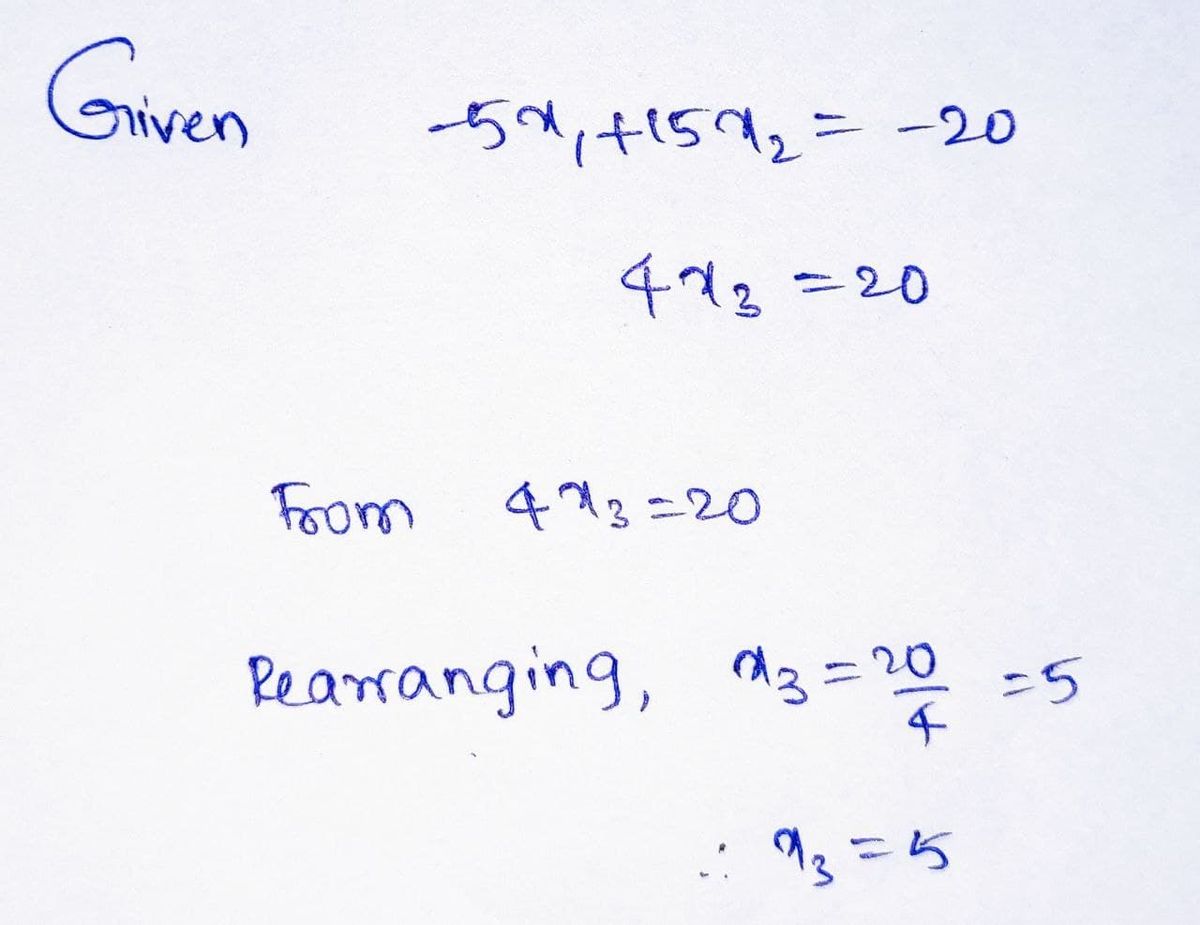 Given -5x₁+15x₂ = -20
4x₃ = 20
From 4x₃ = 20
Rearranging, x₃ = 20/4 = 5
∴ x₃ = 5